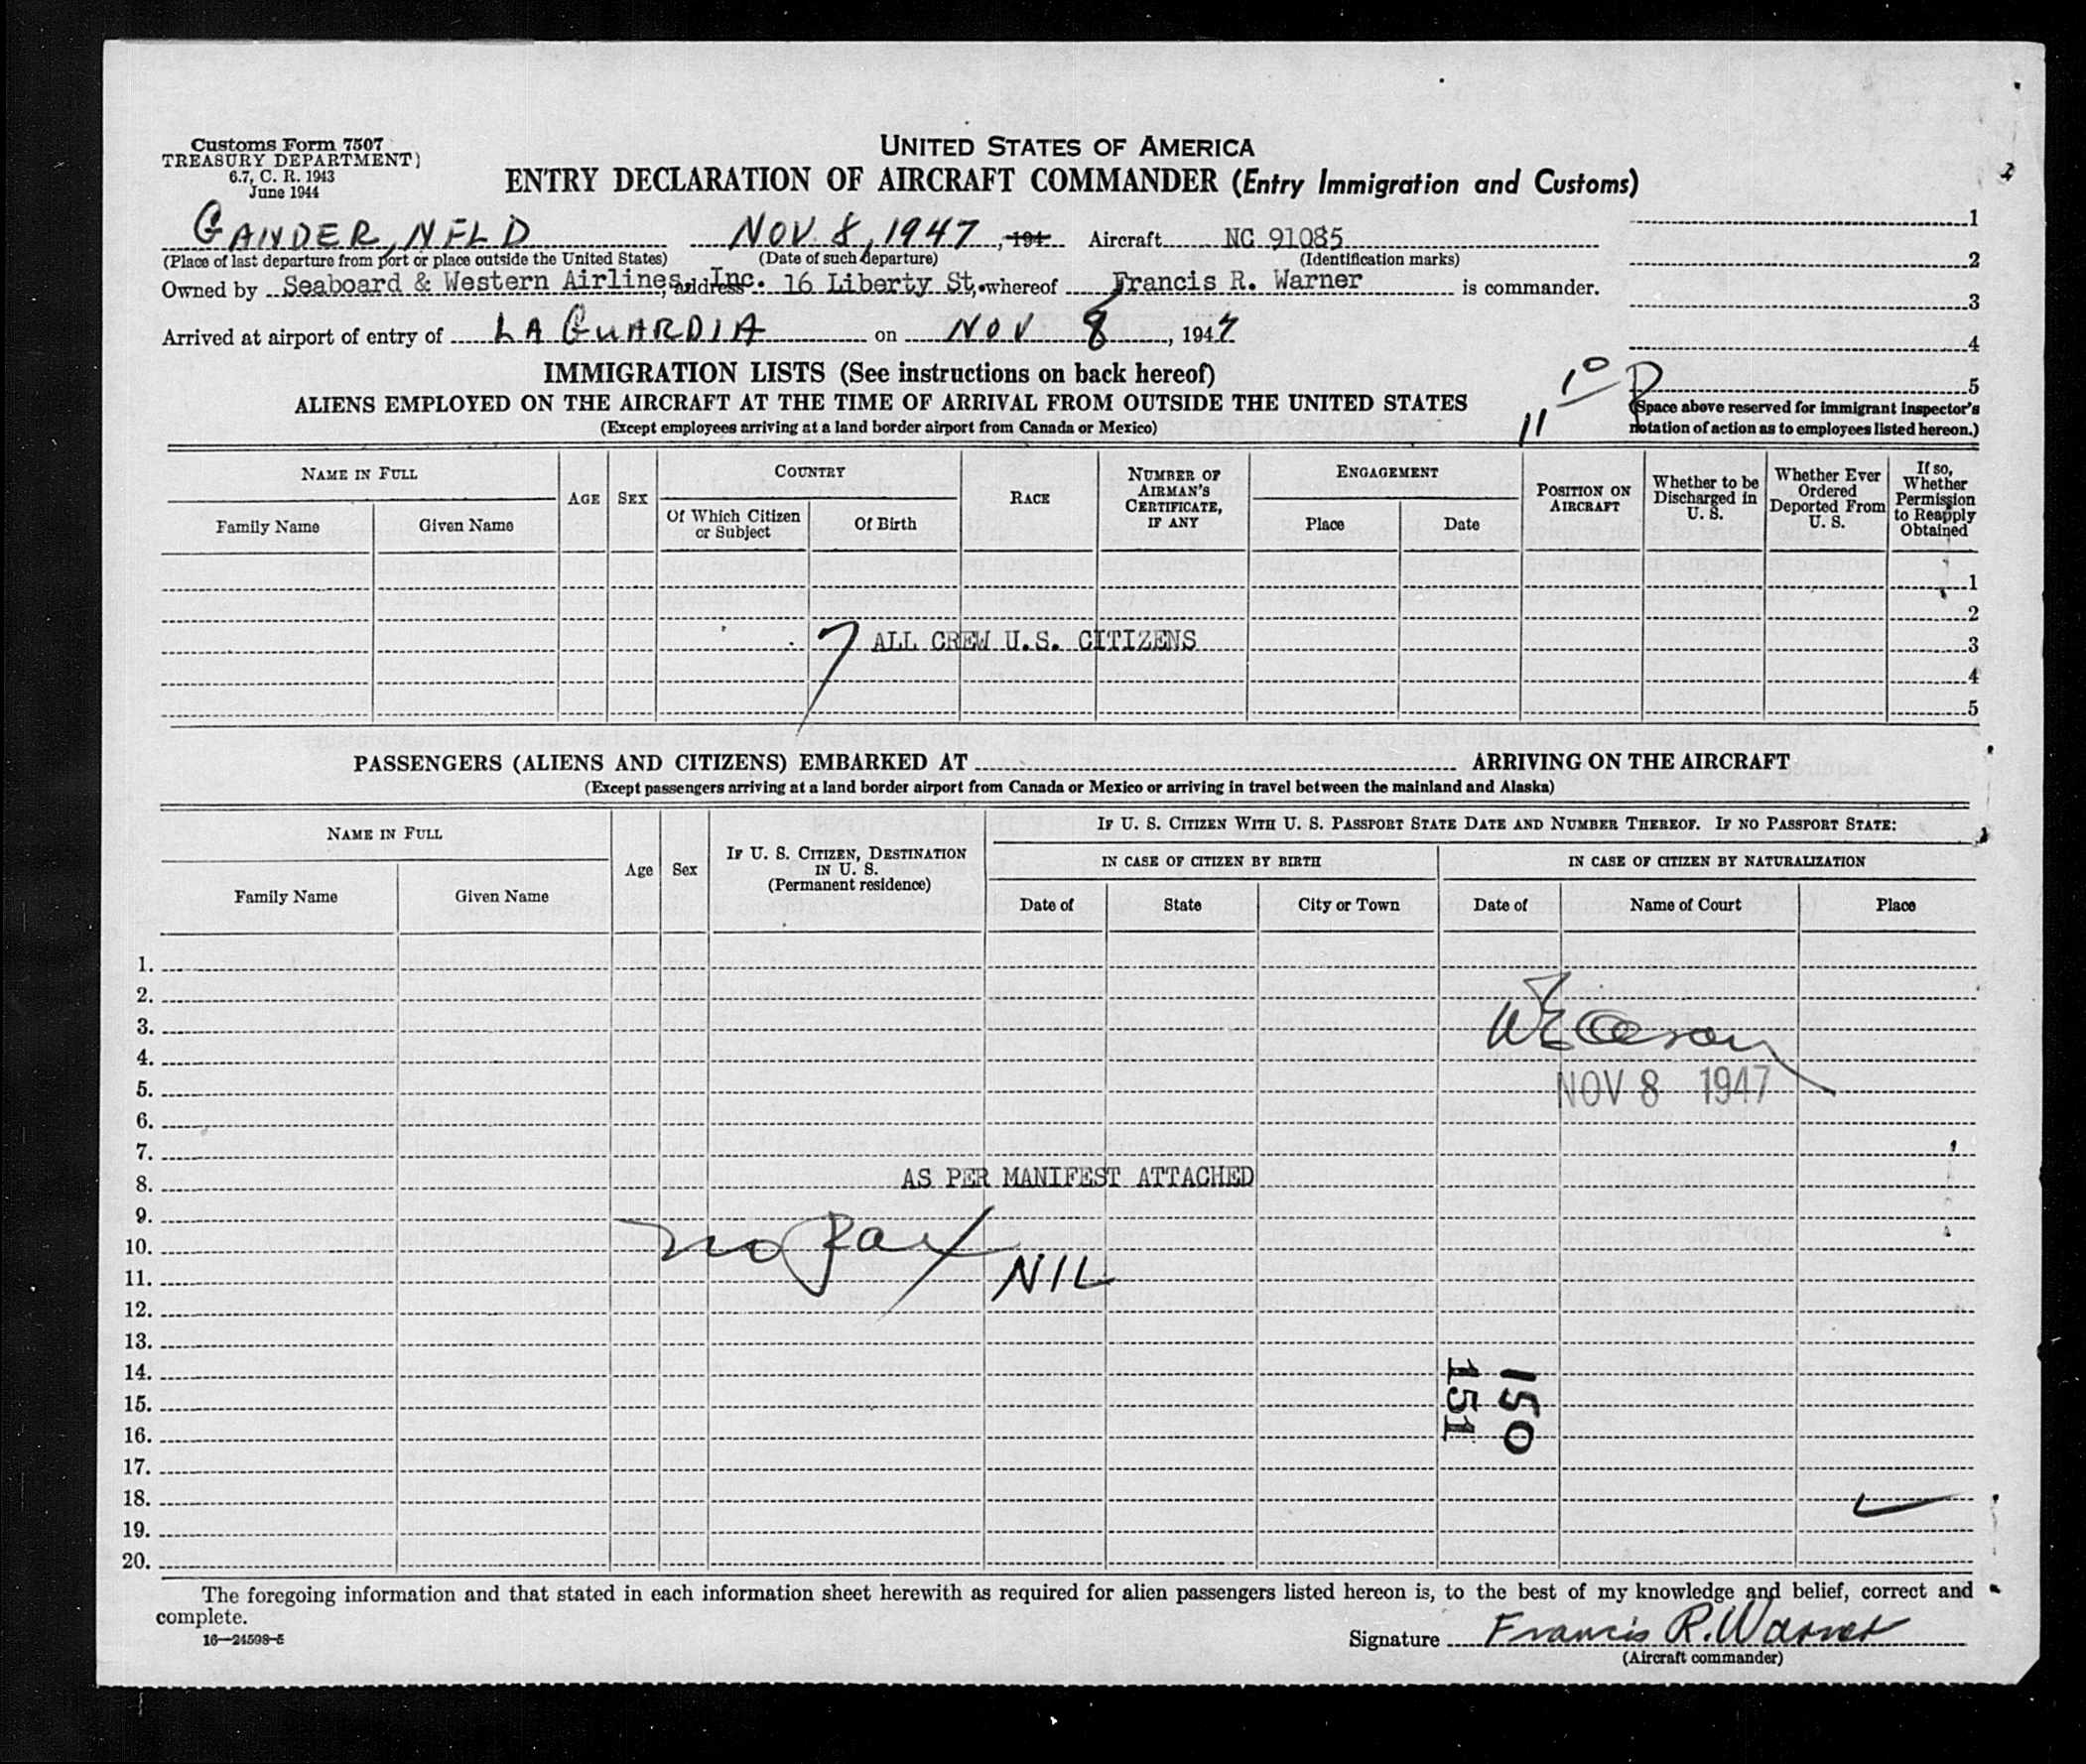 Customs Form 7507
TREASURY DEPARTMENT)
6.7, C. R. 1943
June 1944
UNITED STATES OF AMERICA
ENTRY DECLARATION OF AIRCRAFT COMMANDER (Entry Immigration and Customs)
GANDER, NFLD NOV. 8, 1947, 194 Aircraft NC 91085
(Place of last departure from port or place outside the United States) (Date of such departure) (Identification marks)
Owned by Seaboard & Western Airlines, Inc. address 16 Liberty St. whereof Francis R. Warner is commander.
Arrived at airport of entry of LA GUARDIA on NOV 8, 1947
1
2
3
4
5
(Space above reserved for immigrant inspector's
notation of action as to employees listed hereon.)
IMMIGRATION LISTS (See instructions on back hereof)
ALIENS EMPLOYED ON THE AIRCRAFT AT THE TIME OF ARRIVAL FROM OUTSIDE THE UNITED STATES
(Except employees arriving at a land border airport from Canada or Mexico)
NAME IN FULL
Family Name Given Name
AGE SEX
COUNTRY
Of Which Citizen or Subject
Of Birth
RACE
NUMBER OF AIRMAN'S CERTIFICATE, IF ANY
ENGAGEMENT
Place Date
POSITION ON AIRCRAFT
Whether to be Discharged in U. S.
Whether Ever Ordered Deported From U. S.
If so, Whether Permission to Reapply Obtained
1
2
7 ALL CREW U.S. CITIZENS 3
4
5
PASSENGERS (ALIENS AND CITIZENS) EMBARKED AT ARRIVING ON THE AIRCRAFT
(Except passengers arriving at a land border airport from Canada or Mexico or arriving in travel between the mainland and Alaska)
NAME IN FULL
Family Name Given Name
Age Sex
IF U. S. CITIZEN, DESTINATION IN U. S.
(Permanent residence)
IF U. S. CITIZEN WITH U. S. PASSPORT STATE DATE AND NUMBER THEREOF. IF NO PASSPORT STATE:
IN CASE OF CITIZEN BY BIRTH IN CASE OF CITIZEN BY NATURALIZATION
Date of State City or Town Date of Name of Court Place
1.
2.
3.
4.
5. NOV 8 1947
6.
7.
8. AS PER MANIFEST ATTACHED
9.
10. no Pax
11. NIL
12.
13.
14. 150
15. 151
16.
17.
18.
19.
20.
The foregoing information and that stated in each information sheet herewith as required for alien passengers listed hereon is, to the best of my knowledge and belief, correct and
complete.
16—24598-5
Signature Francis R. Warner
(Aircraft commander)